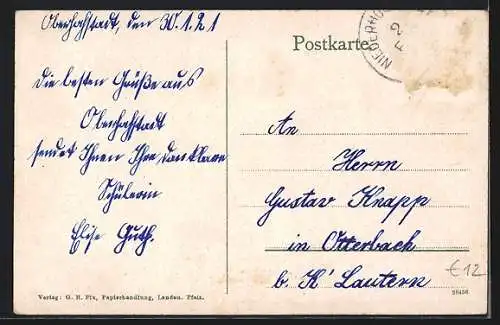 Oberhochstadt, den 30.1.21
Die besten Grüße aus
Oberhochstadt
sendet Ihnen Ihre dankbare
Schülerin
Elise Guth.
Postkarte
An
Herrn
Gustav Knapp
in Otterbach
b. K'Lautern
€12
Verlag: G. H. Fix, Papierhandlung, Landau, Pfalz.